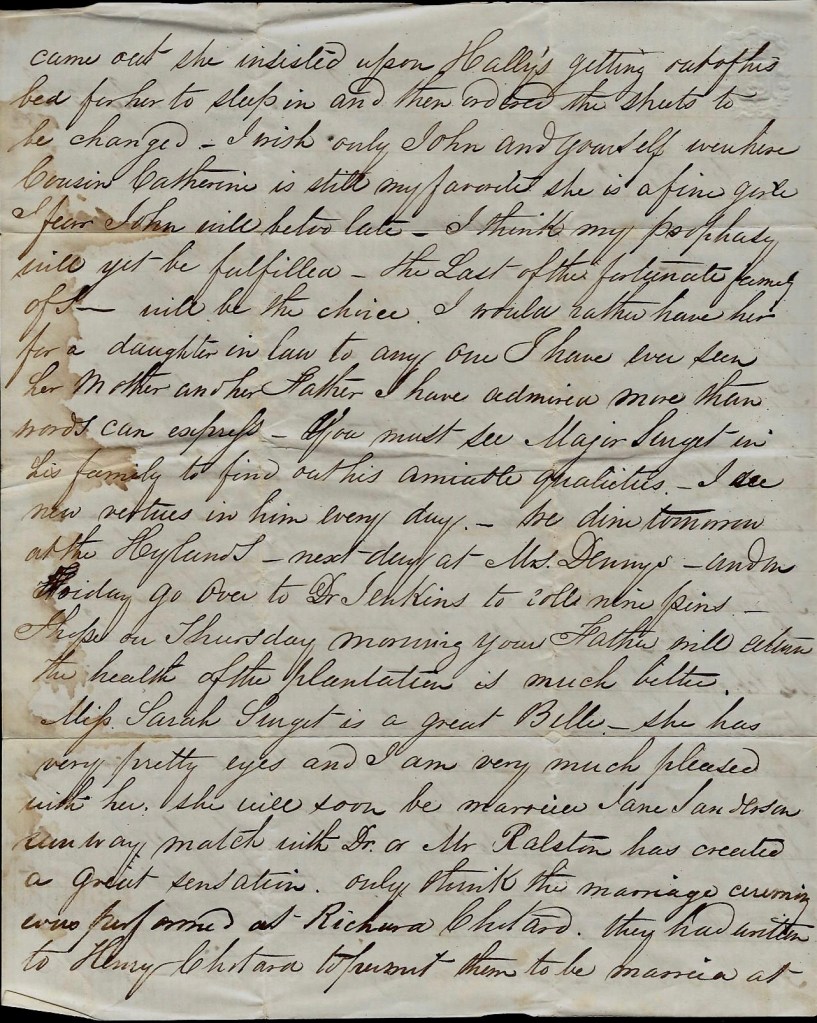 came out she insisted upon Hally's getting out of his
bed for her to sleep in and then ordered the sheets to
be changed – I wish only John and yourself were here
Cousin Catherine is still my favorite she is a fine girle
I fear John will be too late – I think my prophasy
will yet be fulfilled – the Last of the fortunate family
of S— will be the choice. I would rather have her
for a daughter in law to any one I have ever seen
her Mother and her Father I have admired more than
words can express – You must see Major Surget in
his family to find out his amiable qualieties – I see
new vertues in him every day. – we dine tomorrow
at the Hylands – next day at Ms. Dennys – and on
Friday go over to Dr Jenkins to roll nine pins –
I hope on Thursday morning your Father will return
the health of the plantation is much better.
Miss Sarah Surget is a great Belle – she has
very pretty eyes and I am very much pleased
with her. she will soon be married Jane Sanderson
runway match with Dr. or Mr Ralston has created
a great sensation. only think the marriage ceremony
was performed at Richard Chotard. they had written
to Henry Chotard to permit them to be married at